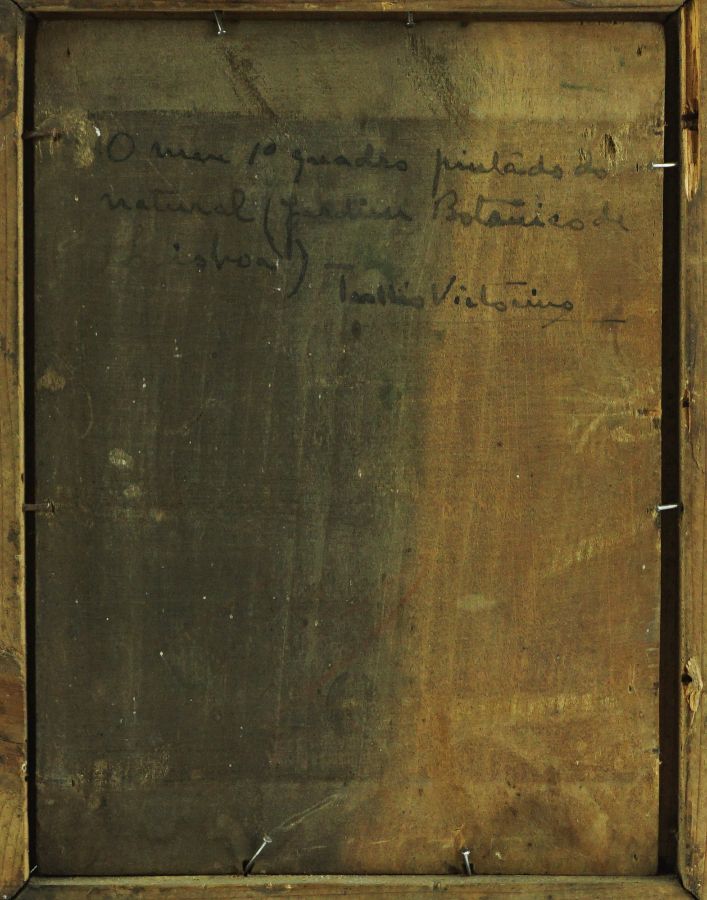 O meu 1º quadro pintado do
natural (Jardim Botanico de
Lisboa)
Tullio Victorino